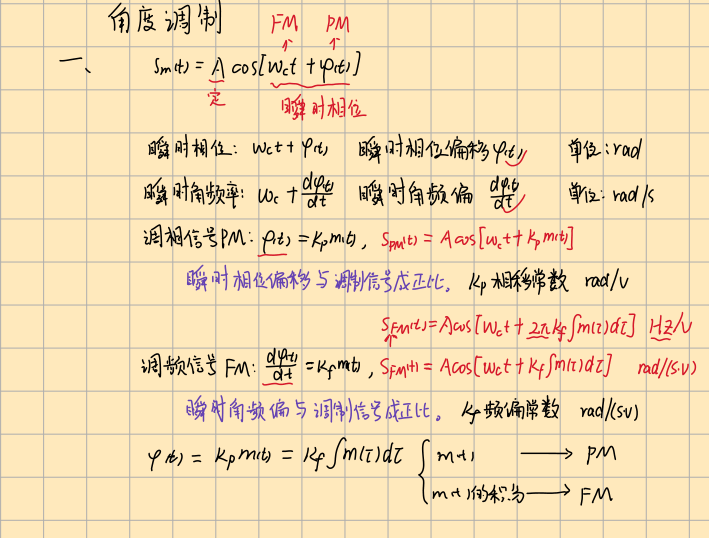 角度调制
FM PM
↑ ↑
一、 Sm(t) = A cos[ωct + φ(t)]
定 瞬时相位
瞬时相位: ωct + φ(t) 瞬时相位偏移φ(t) 单位: rad
瞬时角频率: ωc + dφ(t)/dt 瞬时角频偏 dφ(t)/dt 单位: rad/s
调相信号PM: φ(t) = Kp m(t), SPM(t) = A cos[ωct + Kp m(t)]
瞬时相位偏移与调制信号成正比。 Kp 相移常数 rad/v
SFM(t) = A cos[ωct + 2π kf∫m(τ)dτ] HZ/V
调频信号FM: dφ(t)/dt = Kf m(t), SFM(t) = A cos[ωct + Kf∫m(τ)dτ] rad/(s·v)
瞬时角频偏与调制信号成正比。 Kf 频偏常数 rad/(s·v)
φ(t) = Kp m(t) = Kf∫m(τ)dτ { m(t) → PM
m(t)的积分 → FM